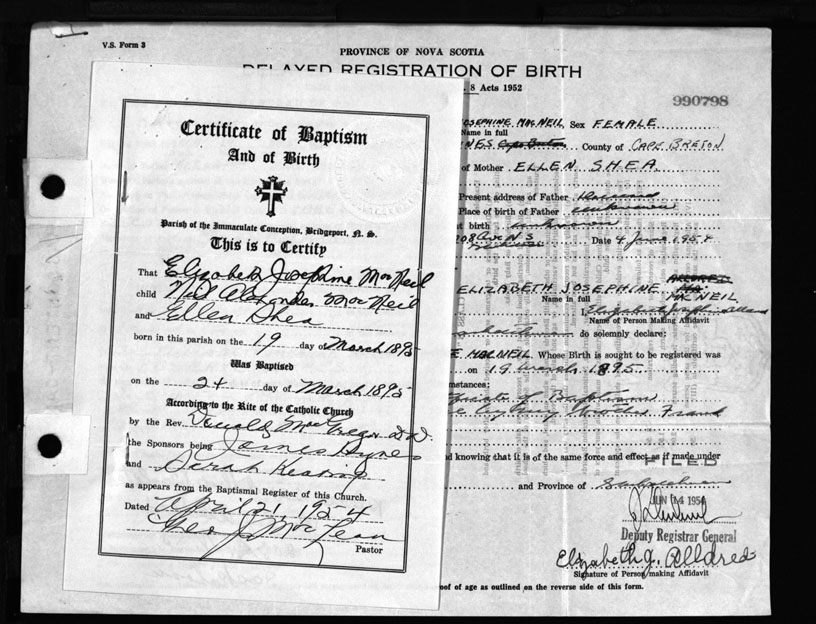 V.S. Form 3
PROVINCE OF NOVA SCOTIA
DELAYED REGISTRATION OF BIRTH
8 Acts 1952
990798
Certificate of Baptism
And of Birth
Parish of the Immaculate Conception, Bridgeport, N. S.
This is to Certify
That Elizabeth Josephine MacNeil
child Neil Alexander MacNeil
and Ellen Shea
born in this parish on the 19 day of March 1895
Was Baptised
on the 24 day of March 1895
According to the Rite of the Catholic Church
by the Rev. Donald MacGregor D.D.
the Sponsors being James Hynes
and Sarah Keating
as appears from the Baptismal Register of this Church.
Dated April 21, 1954
Chas J. MacLean
Pastor
JOSEPHINE MACNEIL, Sex FEMALE
Name in full
County of CAPE BRETON
of Mother ELLEN SHEA
Present address of Father Deceased
Place of birth of Father unknown
birth unknown
Date 4 June 1954
ELIZABETH JOSEPHINE
MACNEIL
Name in full
I,
Name of Person Making Affidavit
do solemnly declare:
MACNEIL. Whose Birth is sought to be registered was
on 19 March 1895
mstances:
of Baptism
Brother Frank
d knowing that it is of the same force and effect as if made under
FILED
and Province of Saskatchewan
JUN 14 1954
Deputy Registrar General
Elizabeth J. Alldred
Signature of Person making Affidavit
oof of age as outlined on the reverse side of this form.